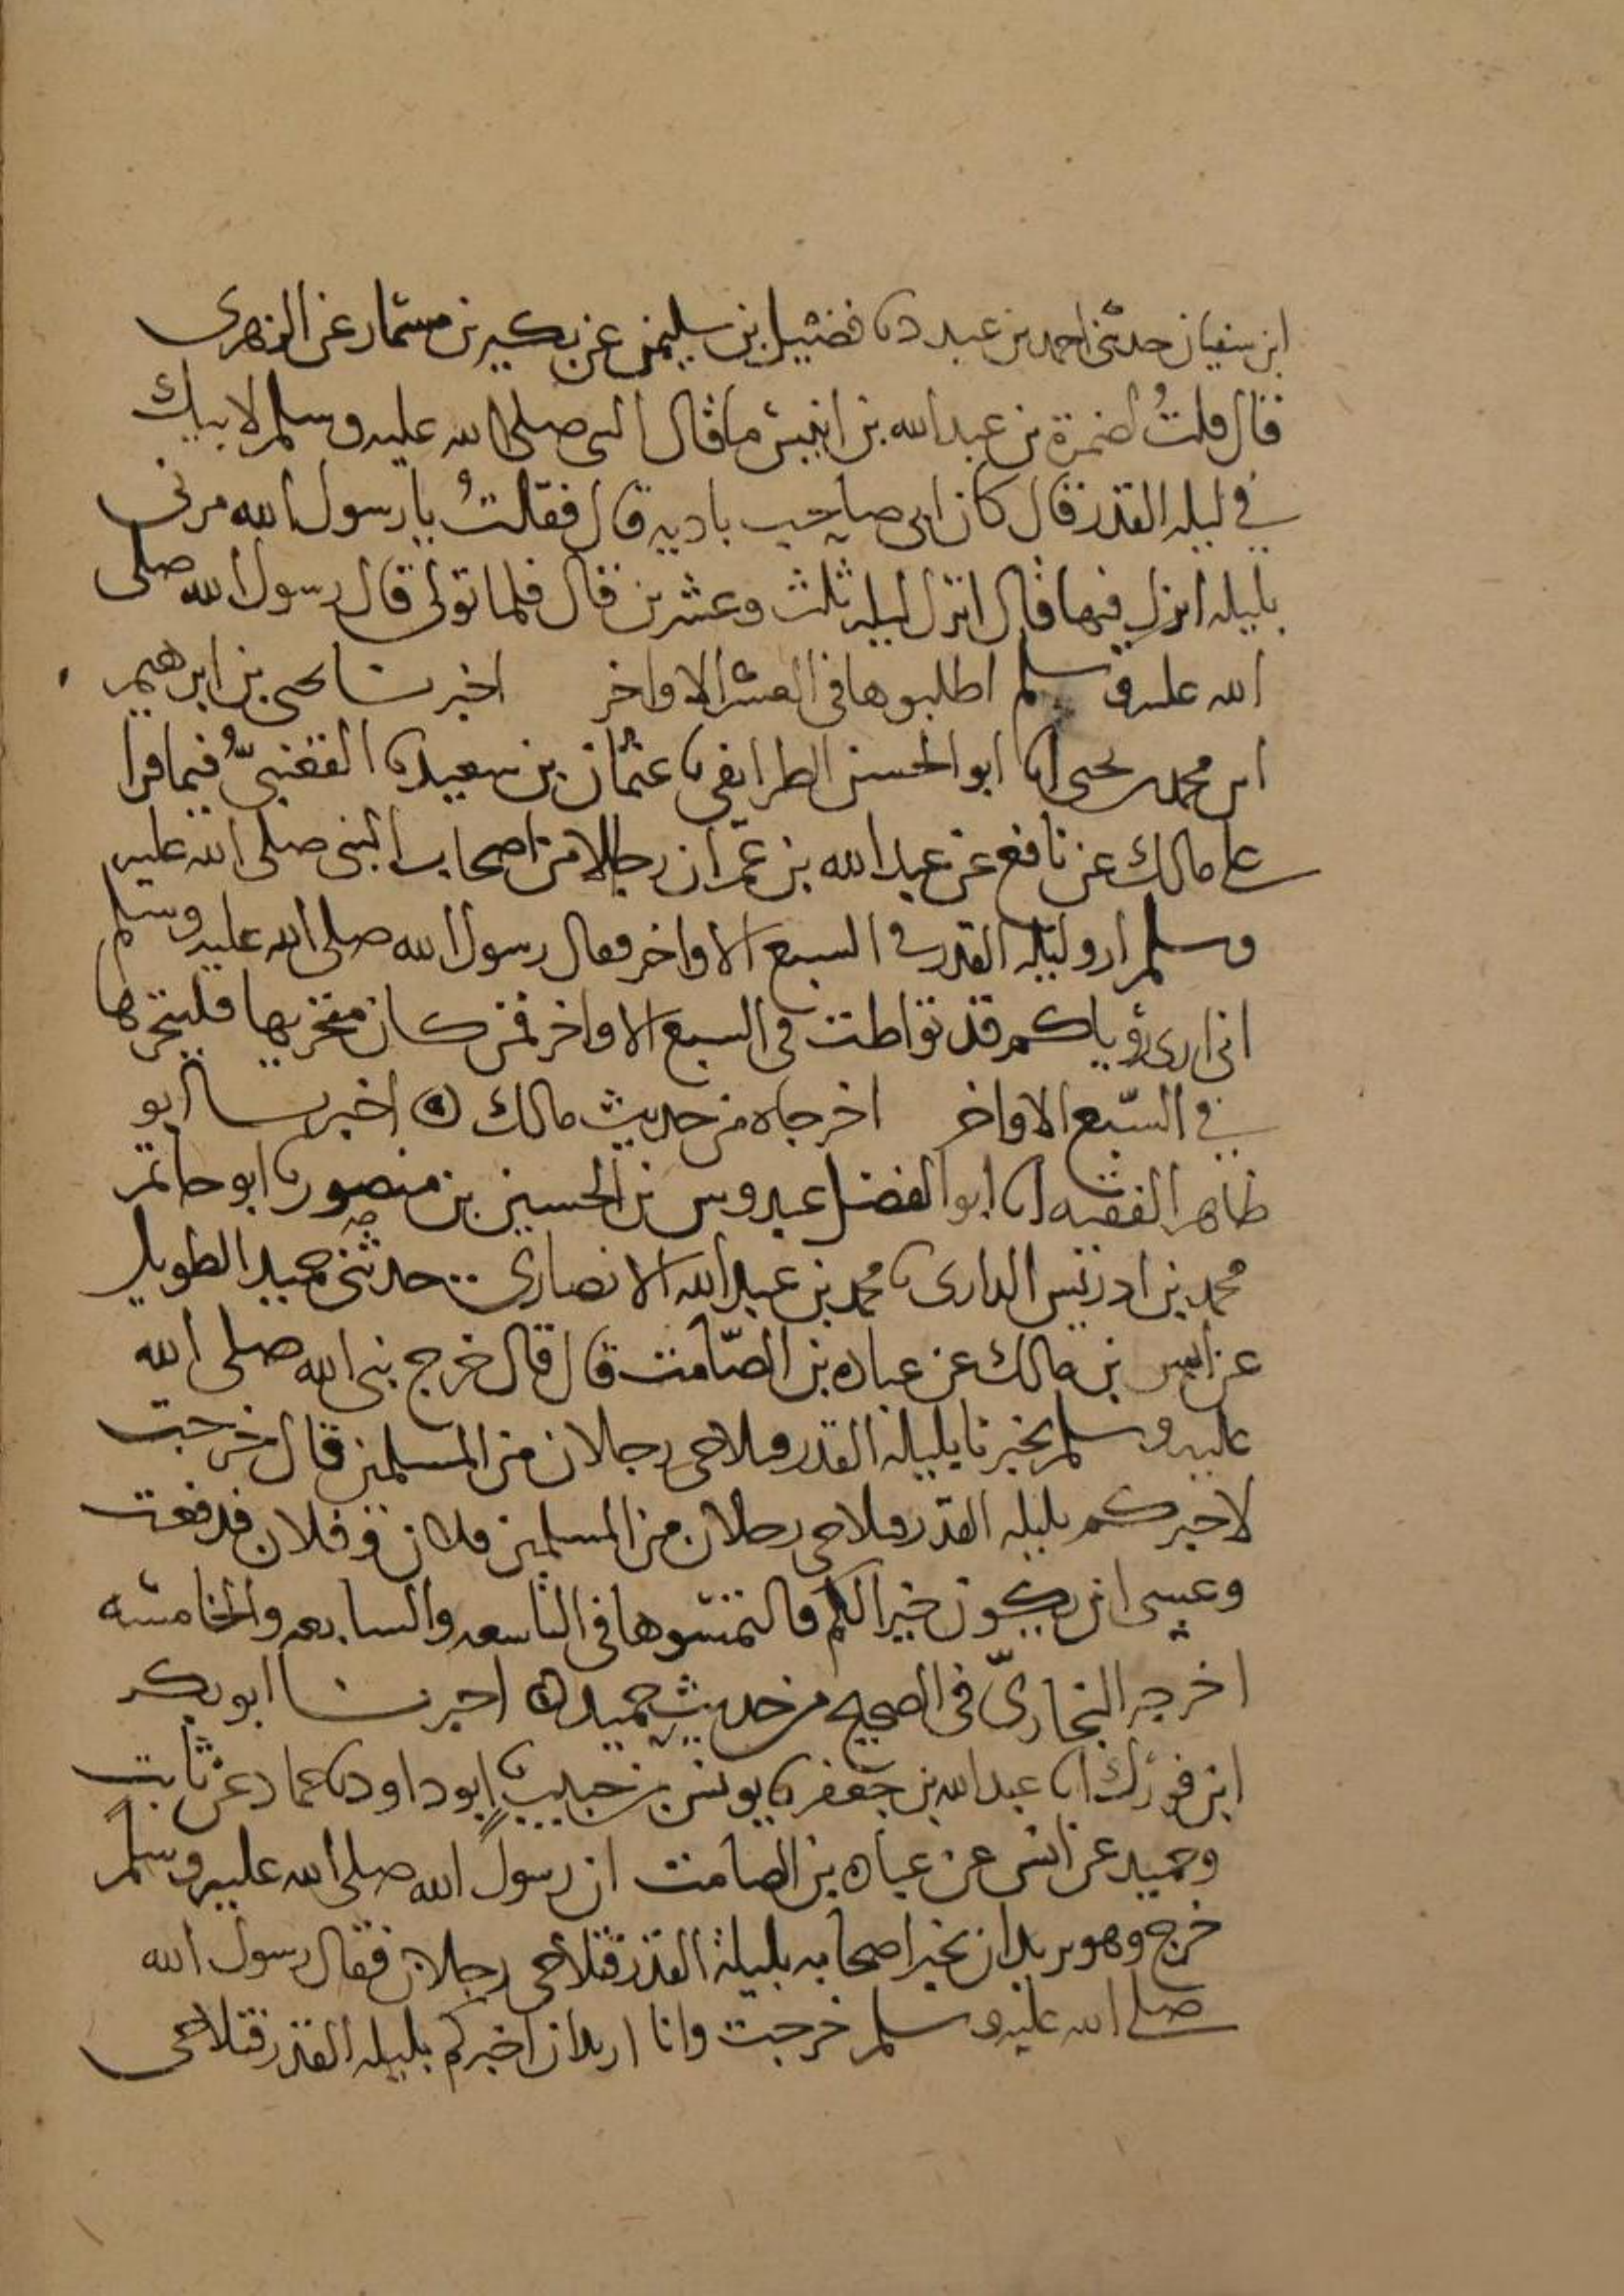 ابن سفيان حدثني احمد بن عبدد نا فضيل بن سليمن عن بكير بن مسمار عن الزهرى
قال قلتُ لضمرة بن عبد الله بن انيس ما قال النبى صلى الله عليه وسلم لابيك
في ليله القدر قال كان ابى صاحب باديه قال فقلتُ يا رسول الله مرنى
بليله انزل فيها قال انزل ليله ثلث وعشرين قال فلما تولى قال رسول الله صلى
الله عليه وسلم اطلبوها فى العشر الاواخر اخبرنا يحيى بن ابرهيم
ابن محمد بن يحيى انا ابو الحسن الطرايفى نا عثمان بن سعيد نا القعنبيُّ فيما قرا
على مالك عن نافع عن عبد الله بن عمر ان رجالا من اصحاب النبى صلى الله عليه
وسلم اروا ليله القدر في السبع الاواخر فقال رسول الله صلى الله عليه وسلم
انى ارى رؤياكم قد تواطت فى السبع الاواخر فمن كان متحريها فليتحرها
في السّبع الاواخر اخرجاه من حديث مالك اخبرنا ابو
طاهر الفقيه انا ابو الفضل عبدوس بن الحسين بن منصور نا ابو حاتم
محمد بن ادريس الرازى نا محمد بن عبد الله الانصارى حدثنى حميد الطويل
عن انس بن مالك عن عباده بن الصّامت قال قال خرج نبى الله صلى الله
عليه وسلم يخبرنا بليله القدر فتلاحى رجلان من المسلمين قال خرجت
لاخبركم بليله القدر فتلاحى رجلان من المسلمين فلان وفلان فرفعت
وعسى ان يكون خيرا لكم فالتمسوها فى التاسعه والسابعه والخامسه
اخرجه البخارىّ فى الصحيح من حديث حميد اخبرنا ابو بكر
ابن فورك انا عبد الله بن جعفر نا يونس بن حبيب نا ابو داود نا حماد عن ثابت
وحميد عن انس عن عباده بن الصامت ان رسول الله صلى الله عليه وسلم
خرج وهو يريد ان يخبر اصحابه بليلة القدر فتلاحى رجلان فقال رسول الله
صلى الله عليه وسلم خرجت وانا اريد ان اخبركم بليله القدر فتلاحى